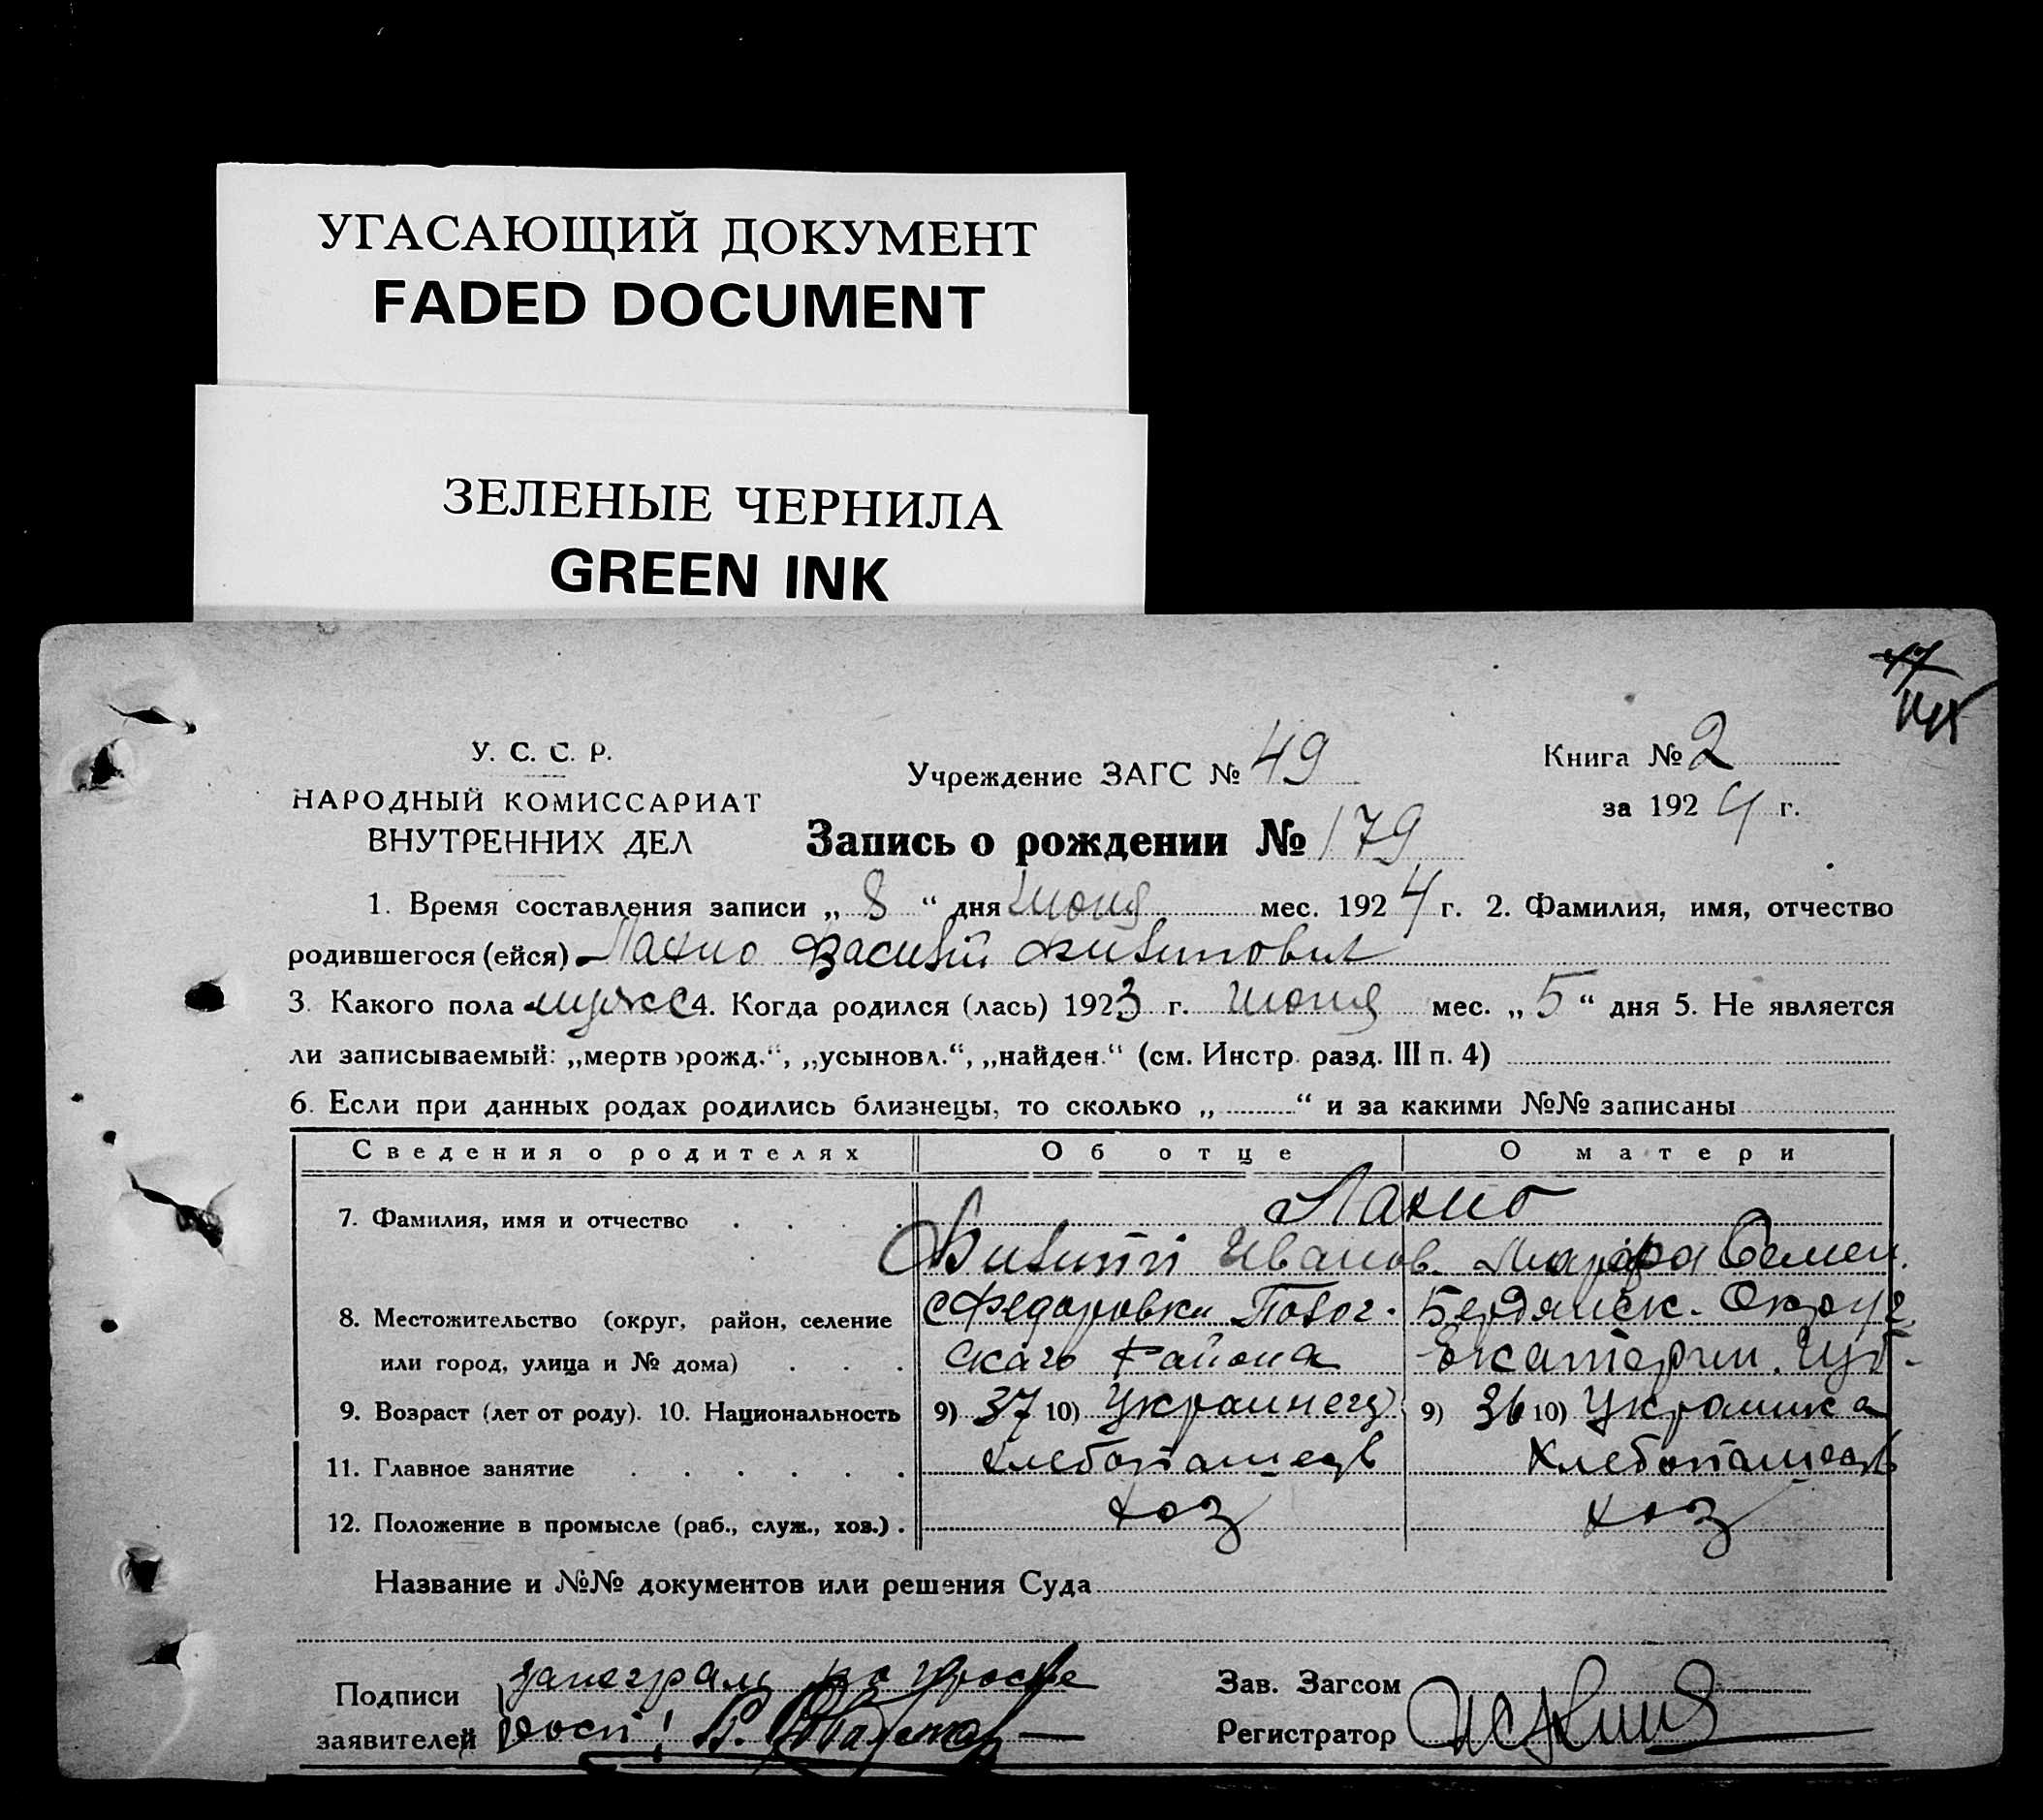 УГАСАЮЩИЙ ДОКУМЕНТ
FADED DOCUMENT
ЗЕЛЕНЫЕ ЧЕРНИЛА
GREEN INK
У. С. С. Р.
НАРОДНЫЙ КОМИССАРИАТ
ВНУТРЕННИХ ДЕЛ
Учреждение ЗАГС № 49
Книга № 2
за 1924 г.
Запись о рождении № 179
1. Время составления записи „ 8 “ дня Июня мес. 1924 г. 2. Фамилия, имя, отчество
родившегося (ейся) Лахно Василий Филипович
3. Какого пола мужс 4. Когда родился (лась) 1923 г. Июня мес. „ 5 “ дня 5. Не является
ли записываемый: „мертворожд.“, „усыновл.“, „найден.“ (см. Инстр. разд. III п. 4)
6. Если при данных родах родились близнецы, то сколько „ “ и за какими №№ записаны
Сведения о родителях Об отце О матери
7. Фамилия, имя и отчество Лахно
Филипп Иванов. Марфа Семен.
8. Местожительство (округ, район, селение с Федоровки Полог- Бердянск. Округ
или город, улица и № дома) скаго Района Екатерин. Губ.
9. Возраст (лет от роду). 10. Национальность 9) 37 10) Украинец 9) 36 10) Украинка
11. Главное занятие Хлебопашець Хлебопашець
12. Положение в промысле (раб., служ., хоз.) хоз хоз
Название и №№ документов или решения Суда
Подписи
заявителей
Зав. Загсом
Регистратор